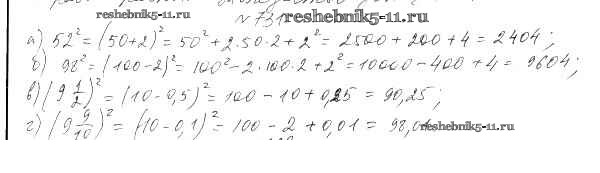 reshebnik5-11.ru
№ 731 reshebnik5-11.ru
а) 52² = (50+2)² = 50² + 2·50·2 + 2² = 2500 + 200 + 4 = 2404;
б) 98² = (100-2)² = 100² - 2·100·2 + 2² = 10000 - 400 + 4 = 9604;
в) (9 1/2)² = (10-0,5)² = 100 - 10 + 0,25 = 90,25;
г) (9 9/10)² = (10-0,1)² = 100 - 2 + 0,01 = 98,01 reshebnik5-11.ru